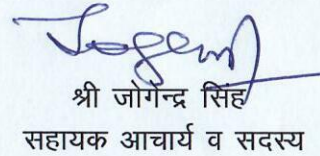 श्री जोगेन्द्र सिंह
सहायक आचार्य व सदस्य